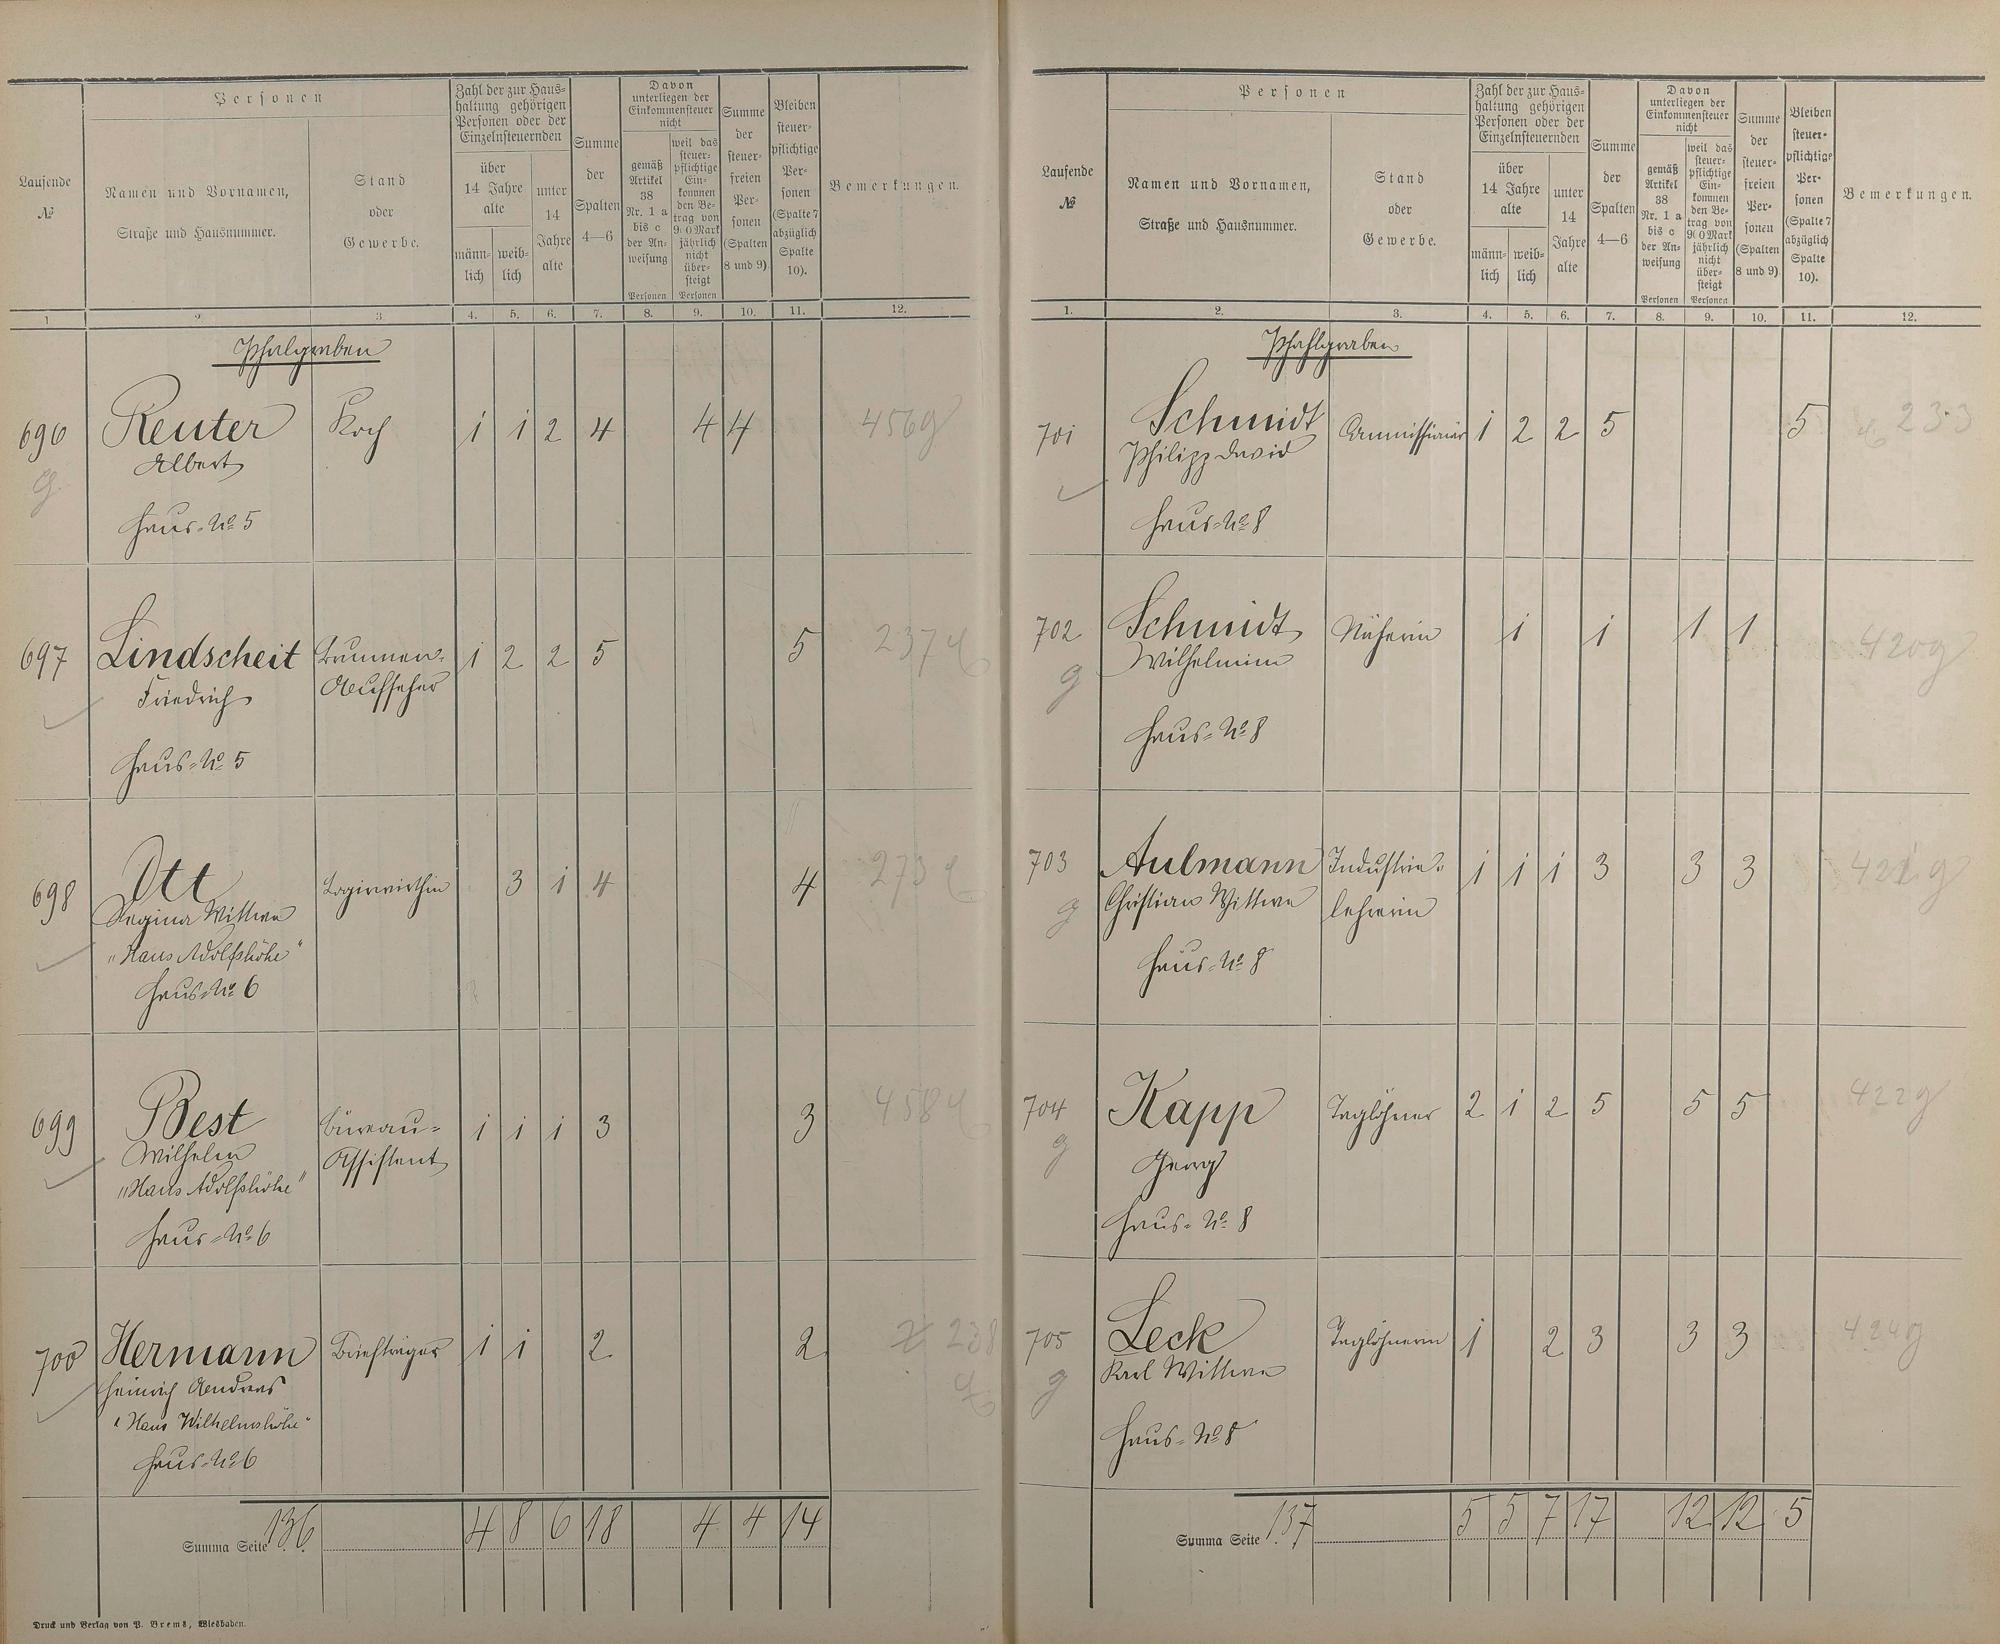 Laufende
№
Personen
Namen und Vornamen,
Straße und Hausnummer.
Stand
oder
Gewerbe.
Zahl der zur Haus=
haltung gehörigen
Personen oder der
Einzelnsteuernden
über
14 Jahre
alte
männ=
lich
weib=
lich
unter
14
Jahre
alte
Summe
der
Spalten
4—6
Davon
unterliegen der
Einkommensteuer
nicht
gemäß
Artikel
38
Nr. 1 a
bis c
der An=
weisung
Personen
weil das
steuer=
pflichtige
Ein=
kommen
den Be=
trag von
900 Mark
jährlich
nicht
über=
steigt
Personen
Summe
der
steuer=
freien
Per=
sonen
(Spalten
8 und 9)
Bleiben
steuer=
pflichtige
Per=
sonen
(Spalte 7
abzüglich
Spalte
10).
Bemerkungen.
1 2. 3. 4. 5. 6. 7. 8. 9. 10. 11. 12.
Pfalgraben
696 Reuter Koch 1 1 2 4 4 4 456 g
g Albert
Haus=No 5
697 Lindscheit Brunnen= 1 2 2 5 5 237
Friedrich Aufseher
Haus=No 5
698 Ott Logirwirthin 3 1 4 4 273
Regina Wittwe
"Haus Adolfshöhe"
Haus=No 6
699 Best Büreau= 1 1 1 3 3 458
Wilhelm Assistent
"Haus Adolfshöhe"
Haus=No 6
700 Hermann Briefträger 1 1 2 2 238
Heinrich Andreas
"Haus Wilhelmshöhe"
Haus=No 6
Summa Seite 136 4 8 6 18 4 4 14
Druck und Verlag von P. Brems, Wiesbaden.
Laufende
№
Personen
Namen und Vornamen,
Straße und Hausnummer.
Stand
oder
Gewerbe.
Zahl der zur Haus=
haltung gehörigen
Personen oder der
Einzelnsteuernden
über
14 Jahre
alte
männ=
lich
weib=
lich
unter
14
Jahre
alte
Summe
der
Spalten
4—6
Davon
unterliegen der
Einkommensteuer
nicht
gemäß
Artikel
38
Nr. 1 a
bis c
der An=
weisung
Personen
weil das
steuer=
pflichtige
Ein=
kommen
den Be=
trag von
900 Mark
jährlich
nicht
über=
steigt
Personen
Summe
der
steuer=
freien
Per=
sonen
(Spalten
8 und 9)
Bleiben
steuer=
pflichtige
Per=
sonen
(Spalte 7
abzüglich
Spalte
10).
Bemerkungen.
1. 2. 3. 4. 5. 6. 7. 8. 9. 10. 11. 12.
Pfahlgraben
701 Schmidt Commissionär 1 2 2 5 5 233
Philipp David
Haus=No 8
702 Schmidt Näherin 1 1 1 1 420 g
g Wilhelmine
Haus=No 8
703 Aulmann Industrie= 1 1 1 3 3 3 421 g
g Christian Wittwe lehrerin
Haus=No 8
704 Kapp Taglöhner 2 1 2 5 5 5 422 g
g Georg
Haus=No 8
705 Leck Taglöhnerin 1 2 3 3 3 424 g
g Karl Wittwe
Haus=No 8
Summa Seite 137 5 5 7 17 12 12 5